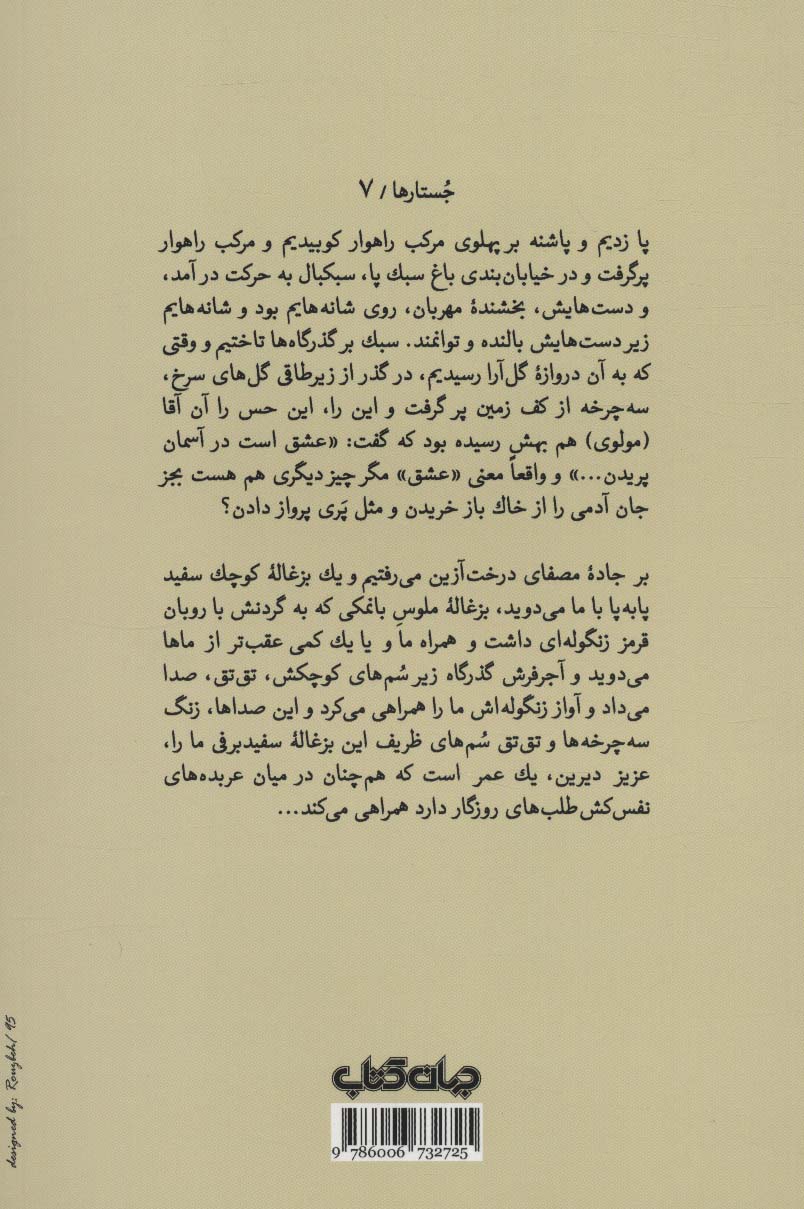 جُستارها / ۷
پا زدیم و پاشنه بر پهلوی مرکب راهوار کوبیدیم و مرکب راهوار
پرگرفت و در خیابان‌بندی باغ سبك پا، سبکبال به حرکت در آمد،
و دست‌هایش، بخشندهٔ مهربان، روی شانه‌هایم بود و شانه‌هایم
زیر دست‌هایش بالنده و توانمند. سبك بر گذرگاه‌ها تاختیم و وقتی
که به آن دروازهٔ گل‌آرا رسیدیم، در گذر از زیرطاقی گل‌های سرخ،
سه‌چرخه از کف زمین پر گرفت و این را، این حس را آن آقا
(مولوی) هم بهش رسیده بود که گفت: «عشق است در آسمان
پریدن...» و واقعاً معنی «عشق» مگر چیز دیگری هم هست بجز
جان آدمی را از خاك باز خریدن و مثل پَری پرواز دادن؟
بر جادهٔ مصفای درخت‌آزین می‌رفتیم و یك بزغالهٔ کوچك سفید
پابه‌پا با ما می‌دوید، بزغالهٔ ملوسِ بانمکی که به گردنش با روبان
قرمز زنگوله‌ای داشت و همراه ما و یا یك کمی عقب‌تر از ماها
می‌دوید و آجرفرش گذرگاه زیر سُم‌های کوچکش، تق‌تق، صدا
می‌داد و آواز زنگوله‌اش ما را همراهی می‌کرد و این صداها، زنگ
سه‌چرخه‌ها و تق‌تق سُم‌های ظریف این بزغالهٔ سفیدبرفی ما را،
عزیز دیرین، یك عمر است که هم‌چنان در میان عربده‌های
نفس‌کش‌طلب‌های روزگار دارد همراهی می‌کند...
جهان کتاب
9 786006 732725
designed by: Rouzbeh/ 95